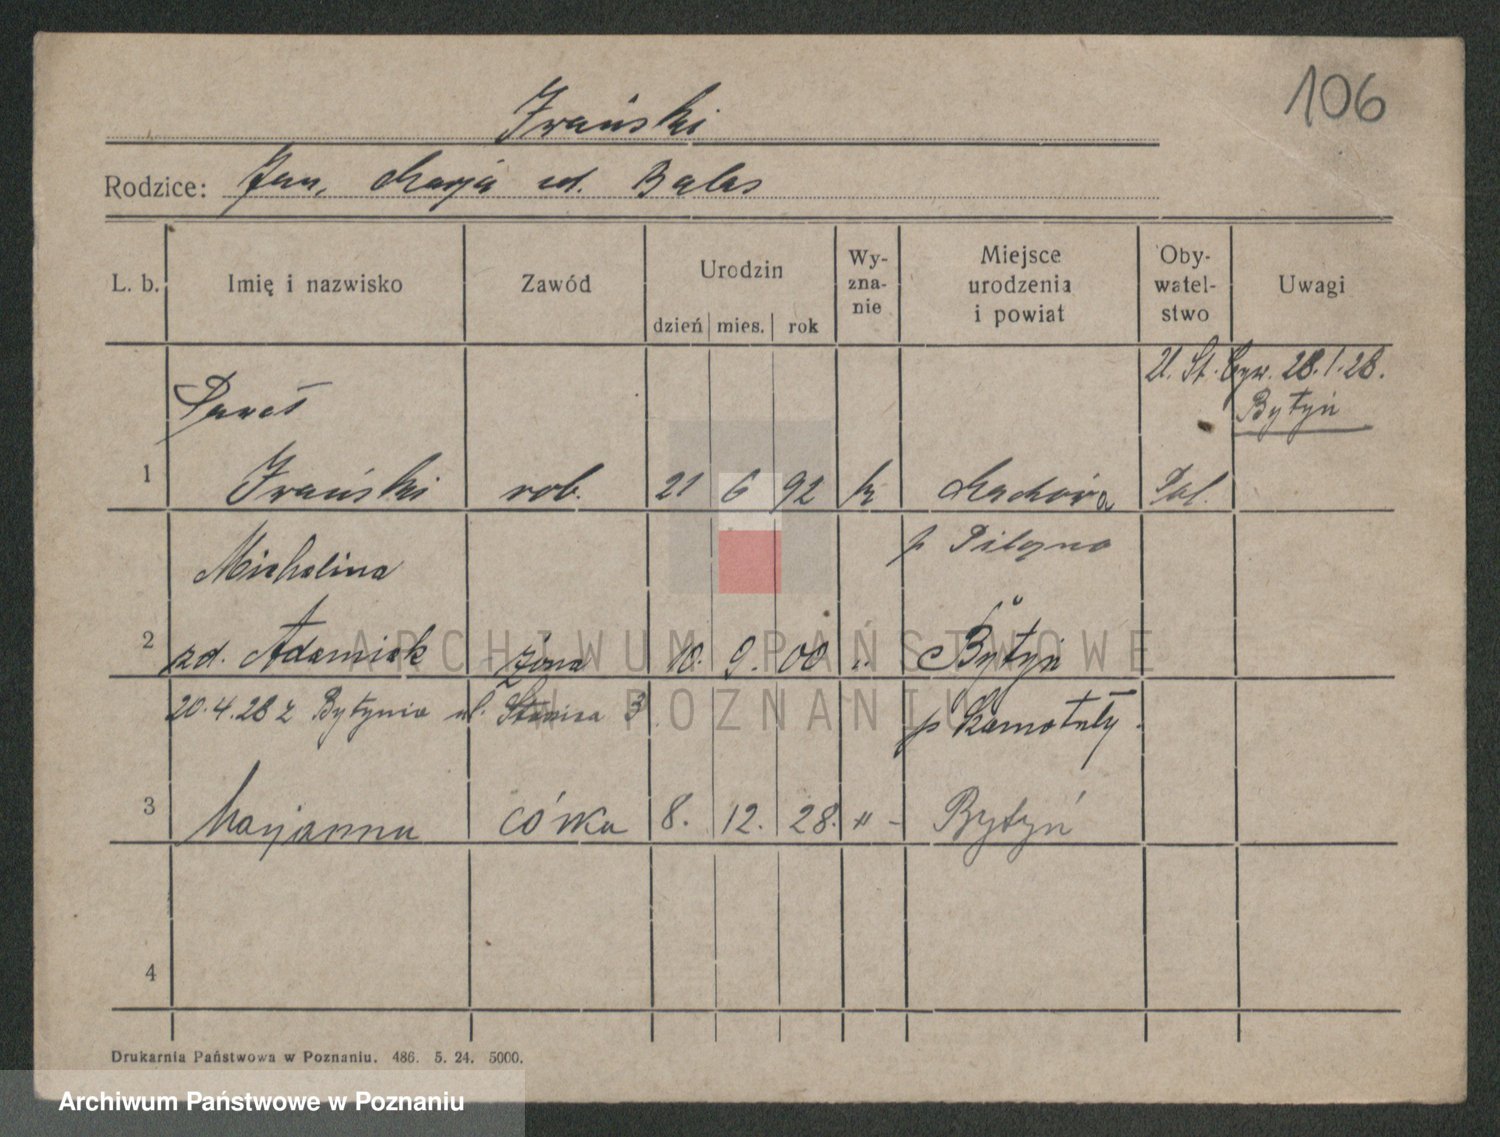 106
Irański
Rodzice: Jan, Marja zd. Balas
L. b. Imię i nazwisko Zawód Urodzin dzień mies. rok Wy-zna-nie Miejsce urodzenia i powiat Oby-watel-stwo Uwagi
Ur. St. Cyw. 28.1.28.
Bytyń
Paweł
1 Irański rob. 21 6 92 k Machowa Pol.
p Pilzno
Michalina
2 zd. Adamiak żona 10. 9. 00 " Bytyń
20.4.28 z Bytynia ul. 3 p Szamotuły
3 Marjanna córka 8. 12. 28. " - Bytyń
4
Drukarnia Państwowa w Poznaniu. 486. 5. 24. 5000.
ARCHIWUM PAŃSTWOWE
W POZNANIU
Archiwum Państwowe w Poznaniu